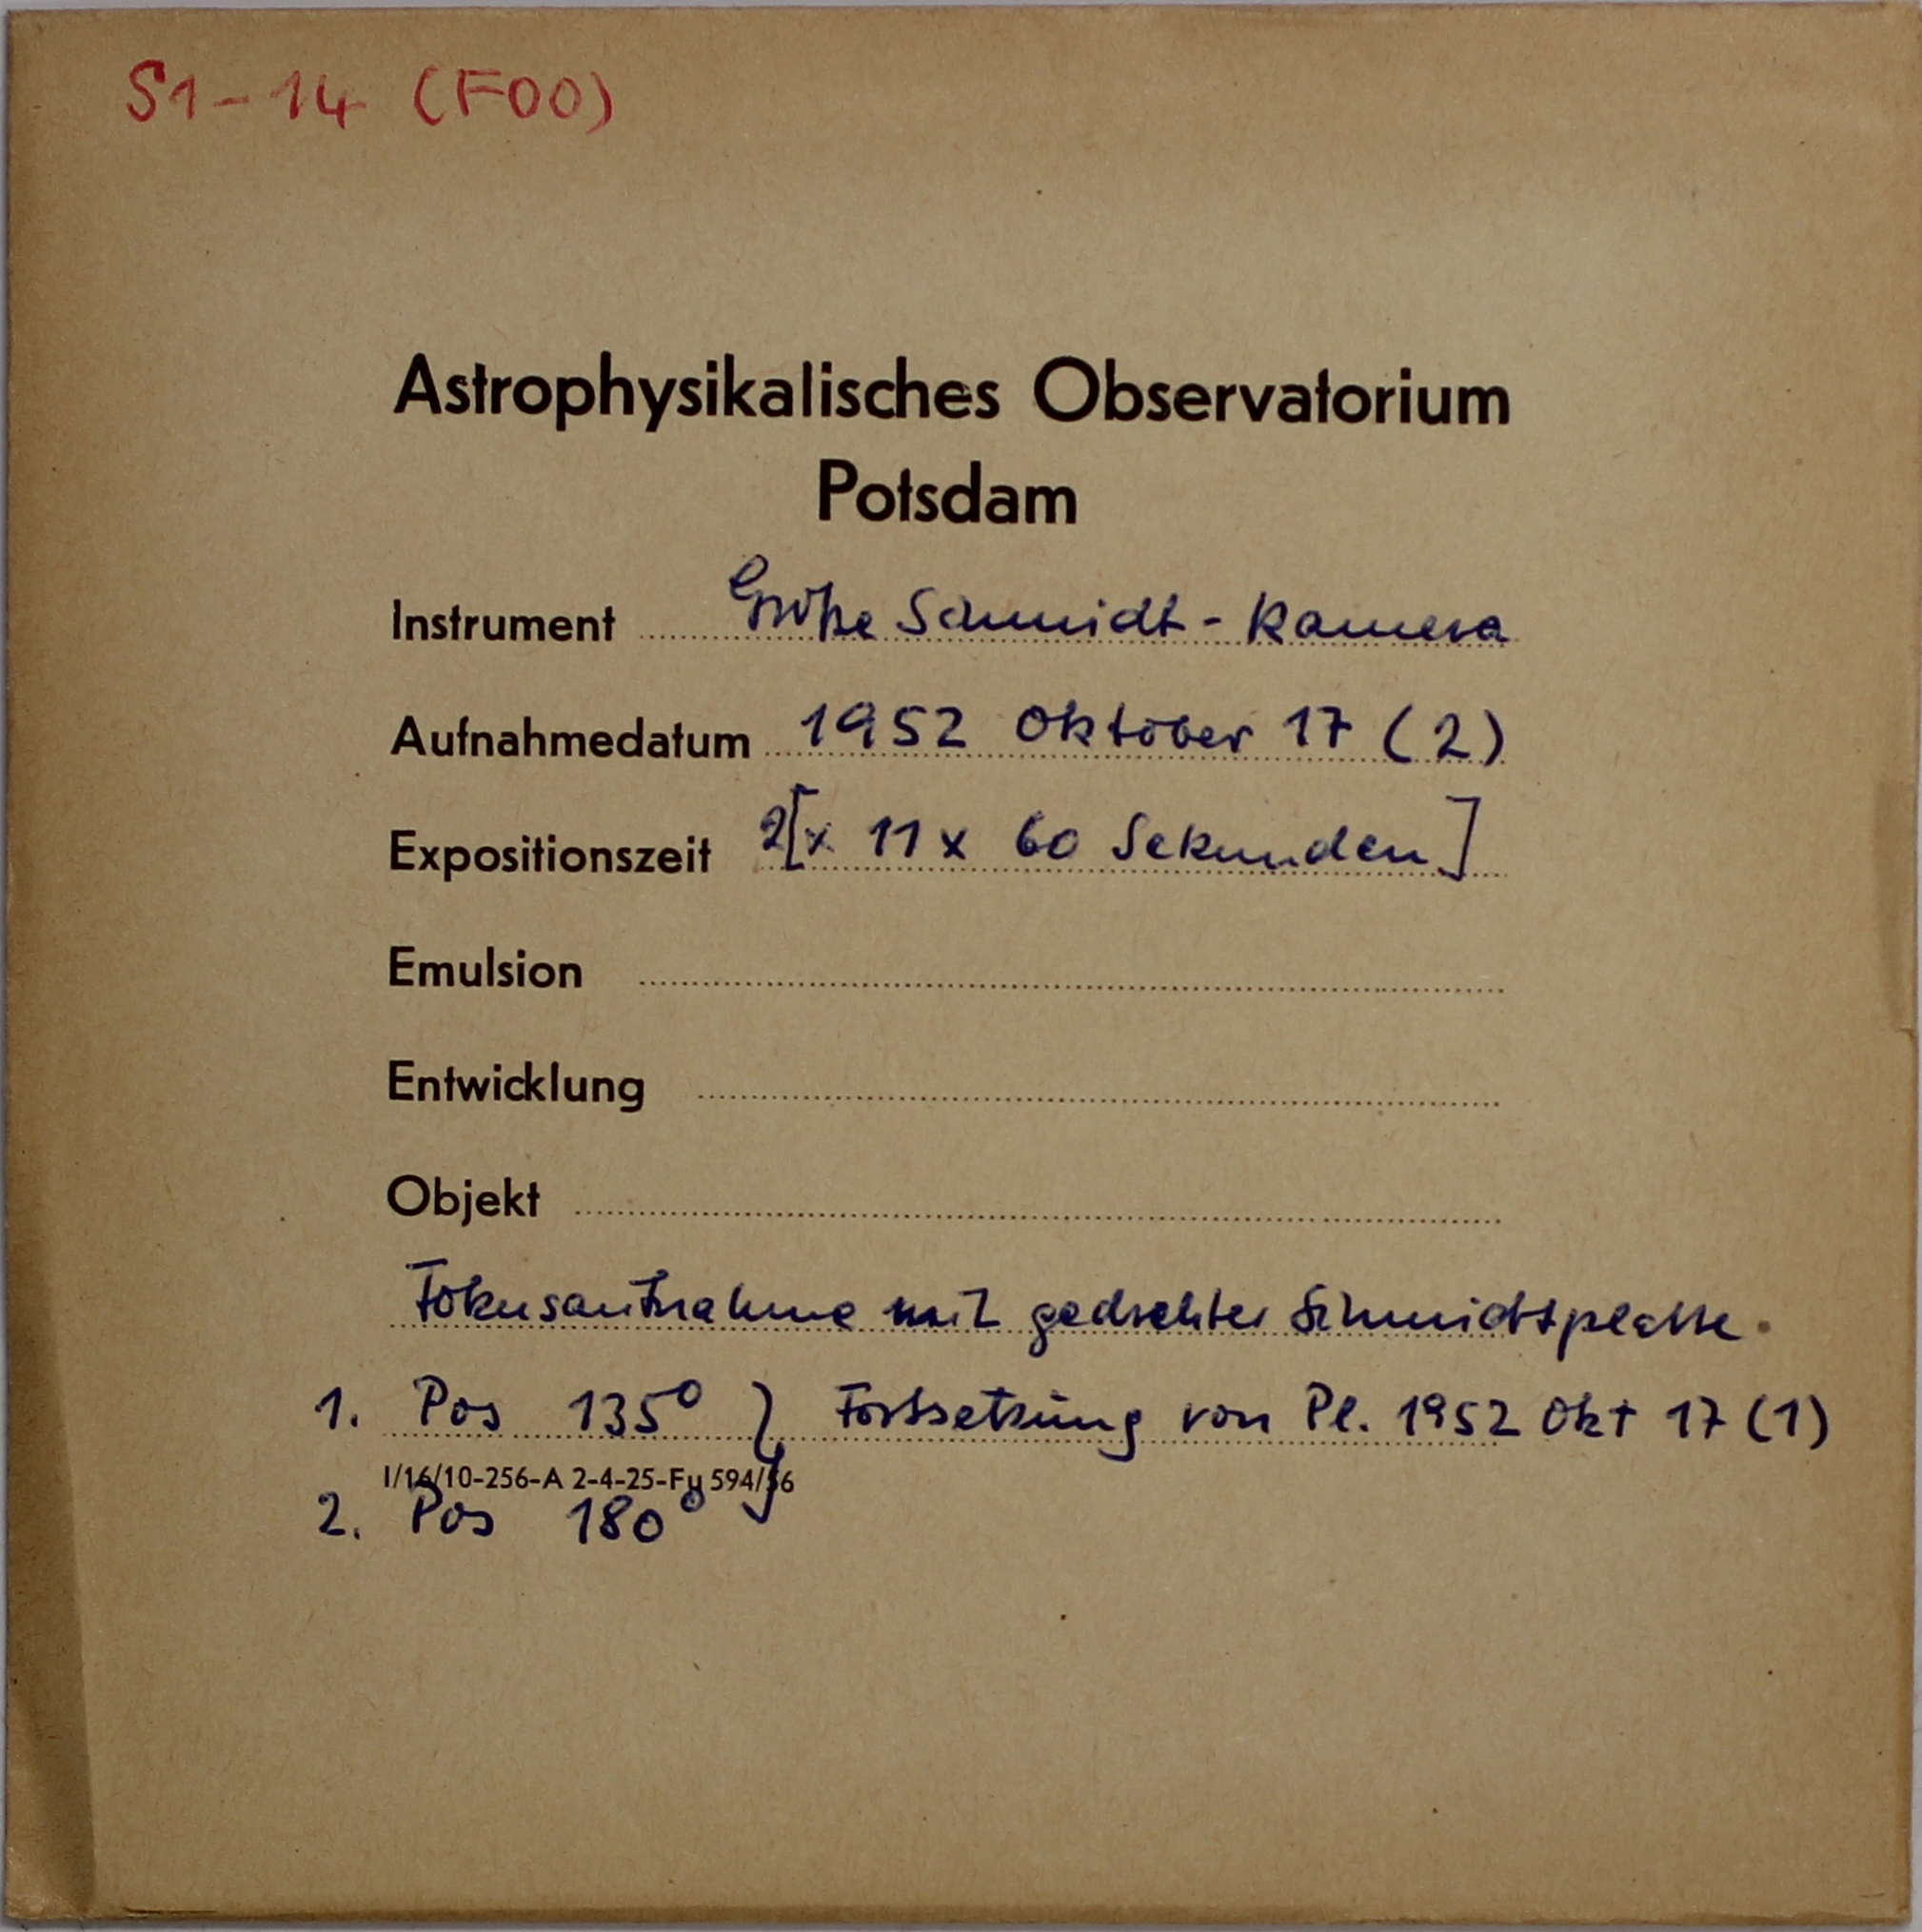 S1-14 (F00)
Astrophysikalisches Observatorium
Potsdam
Instrument Große Schmidt-Kamera
Aufnahmedatum 1952 Oktober 17 (2)
Expositionszeit 2[x 11 x 60 Sekunden]
Emulsion
Entwicklung
Objekt
Fokusaufnahme mit gedrehter Schmidtplatte.
1. Pos 135° } Fortsetzung von Pl. 1952 Okt 17 (1)
I/16/10-256-A 2-4-25-Fu 594/56
2. Pos 180°